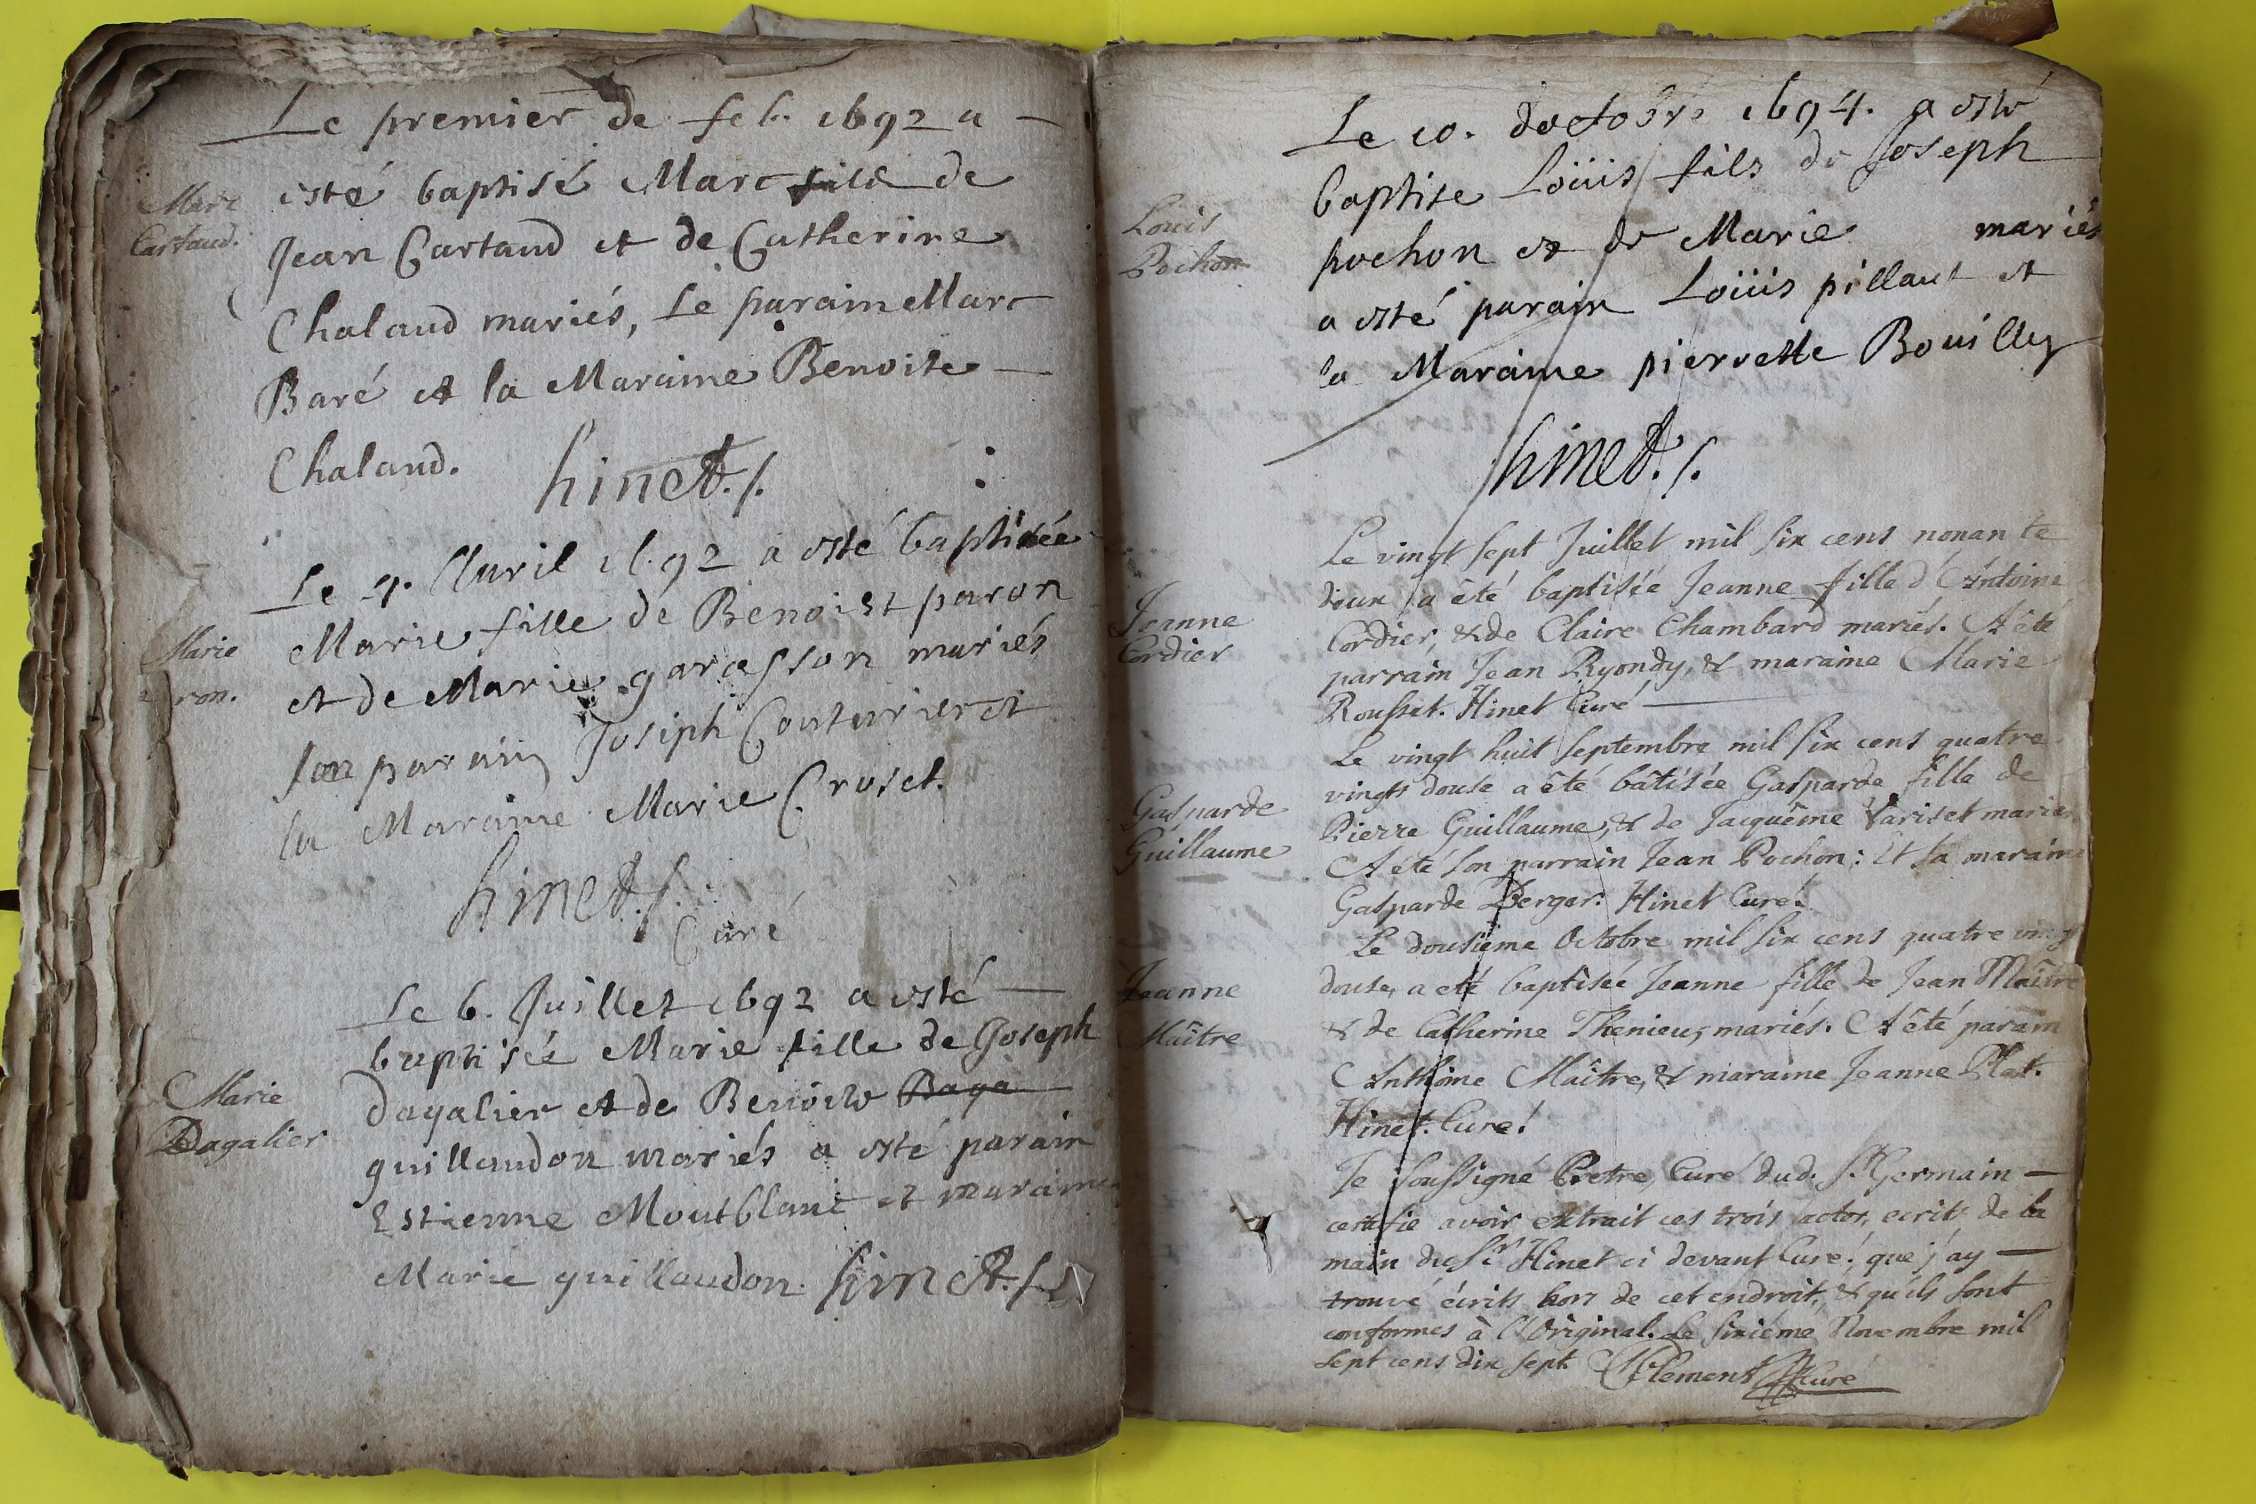 Le premier de feb. 1692 a
Marc
Cartaud.
esté baptisé Marc fils de
Jean Cartaud et de Catherine
Chaland mariés, Le parain Marc
Baré et la Maraine Benoite
Chaland. hinet./.
Le 4. Auril 1692 a esté baptisée
Marie
Marie fille de Benoist paron
et de Marie garasson mariés
son parain Joseph Couturier et
la Maraine Marie Croset.
hinet./.
Curé
Le 6. Juillet 1692 a esté
baptisée Marie fille de Joseph
Marie
Dagalier
Dagalier et de Benoite Baga
guillaudon mariés a esté parain
Estienne Moutblanc et maraine
Marie guillaudon. hinet./.
Le 10. doctobre 1694. a esté
Louis
Pochon
baptise Loüis fils de Joseph
pochon et de Marie mariés
a esté parain Loüis pillaut et
la Maraine pierrette Bouilly
hinet./.
Le vingt sept Juillet mil six cens nonante
Jeanne
Cordier
deux a été baptisée Jeanne fille d'Antoine
Cordier, & de Claire Chambard mariés. A été
parrain Jean Ryondy, & maraine Marie
Rousset. Hinet Curé
Le vingt huit septembre mil six cens quatre
Gasparde
Guillaume
vingts douse a été bâtisée Gasparde fille de
Pierre Guillaume, & de Jacquême Variset mariés
A été son parrain Jean Pochon: Et sa maraine
Gasparde Berger. Hinet Curé!
Le dousième Octobre mil six cens quatre vingt
Jeanne
Maître
douse, a eté baptisée Jeanne fille de Jean Maître
& de Catherine Thenieu, mariés. A été parain
Anthoine Maître, & maraine Jeanne Plat.
Hinet. Curé!
Je soussigné Pretre, Curé dud. St. Germain
certifie avoir extrait ces trois actes, ecrits de la
main du Sr. Hinet ci devant Curé! que j'ay
trouvé écrits hors de cet endroit, & qu'ils sont
conformes à l'Original. Le sixiéme Novembre mil
sept cens dix sept. Clement Curé